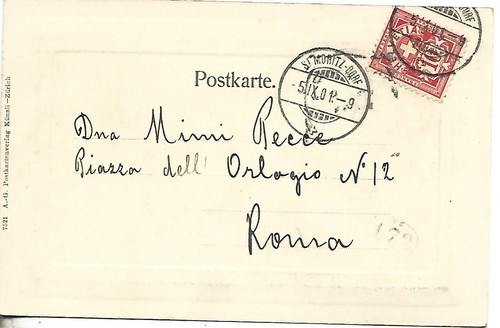 Postkarte.
ST MORITZ-DORF
5.IX.01.-9
Dna Mimi Pecce
Piazza dell' Orlogio N 12
Roma
7321 A.-G. Postkartenverlag Künzli-Zürich